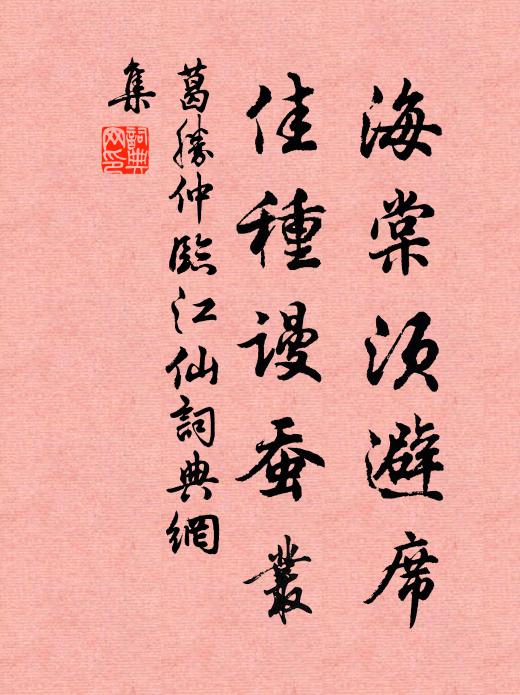 海棠须避席
佳種謾蚕叢
葛勝仲臨江仙詞典網
集
詞典網印